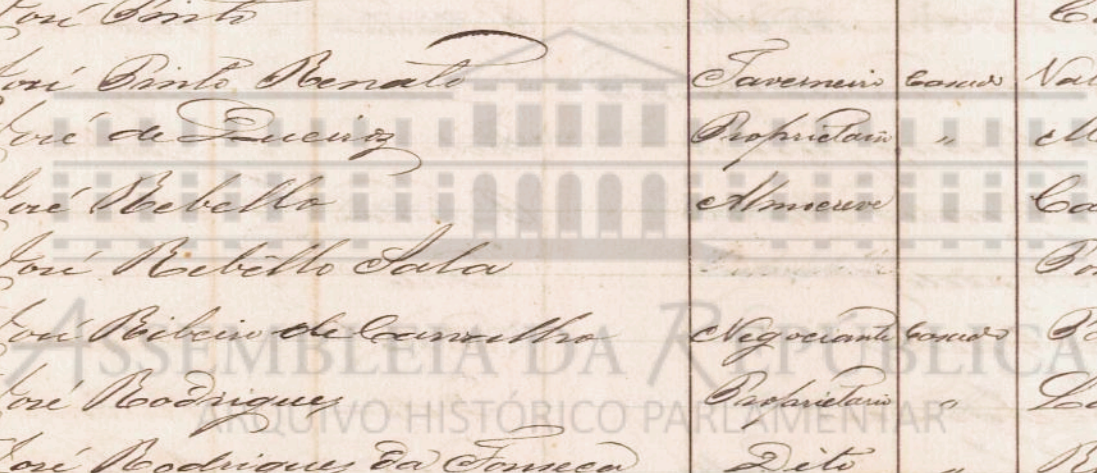 José Pinto
José Pinto Renato Taverneiro Casado
José de Queiroz Proprietario "
José Rebello Almocreve
José Rebêllo Sala
José Ribeiro de Carvalho Negociante Casado
José Rodrigues Proprietario "
José Rodrigues da Fonseca Dito "
ASSEMBLEIA DA REPÚBLICA
ARQUIVO HISTÓRICO PARLAMENTAR